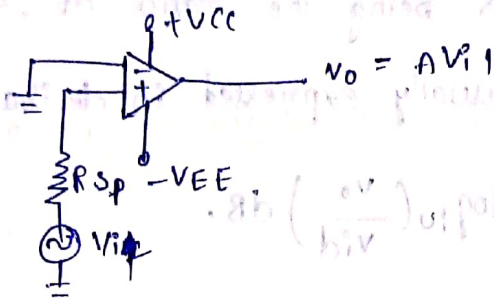 +VCC
Vo = AVi1
-
+
RSp -VEE
Vi